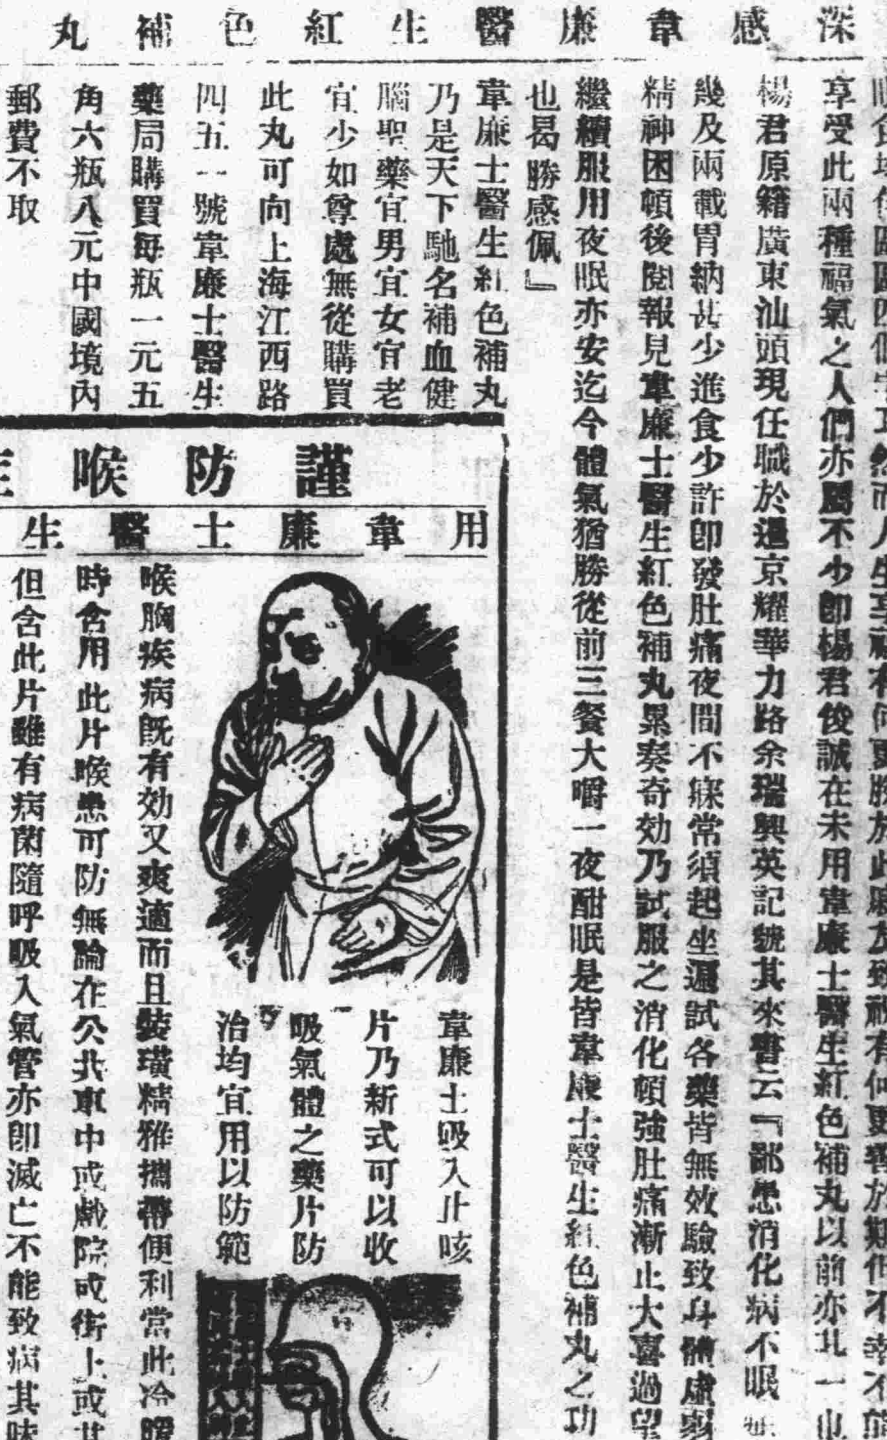 深感韋廉醫生紅色補丸
享受此兩種福氣之人們亦屬不少即楊君俊誠在未用韋廉士醫生紅色補丸以前亦其一也
楊君原籍廣東汕頭現任職於暹京耀華力路余瑞興英記號其來書云『鄙患消化病不眠症
幾及兩載胃納甚少進食少許卽發肚痛夜間不寐常須起坐遍試各藥皆無效驗致身體虛弱
精神困頓後閱報見韋廉士醫生紅色補丸累奏奇効乃試服之消化頓強肚痛漸止大喜過望
繼續服用夜眠亦安迄今體氣猶勝從前三餐大嚼一夜酣眠是皆韋廉士醫生紅色補丸之功
也曷勝感佩』
韋廉士醫生紅色補丸
乃是天下馳名補血健
腦聖藥宜男宜女宜老
宜少如尊處無從購買
此丸可向上海江西路
四五一號韋廉士醫生
藥局購買每瓶一元五
角六瓶八元中國境內
郵費不取
謹防喉
用韋廉士醫生
韋廉士吸入止咳
片乃新式可以收
吸氣體之藥片防
治均宜用以防範
喉胸疾病旣有効又爽適而且裝璜精雅攜帶便利當此冷暖
時含用此片喉患可防無論在公共車中或戲院或街上或其
但含此片雖有病菌隨呼吸入氣管亦卽滅亡不能致病其味